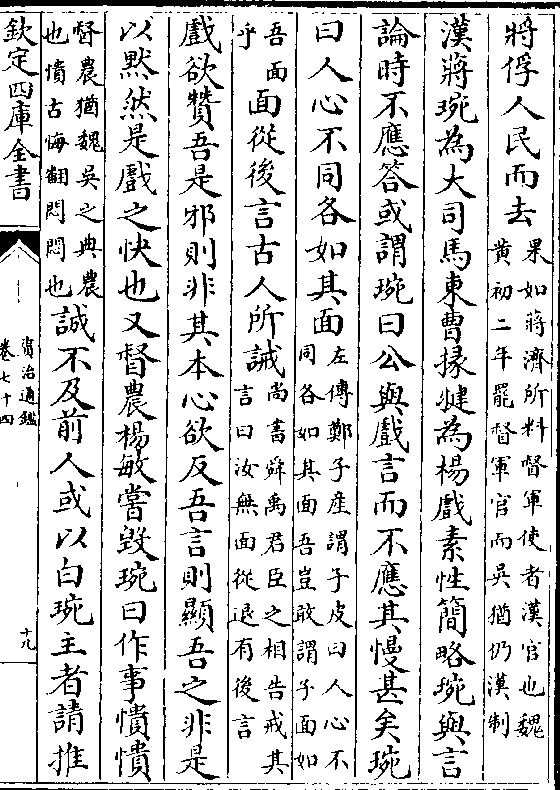 將俘人民而去果如蔣濟所料督軍使者漢官也魏
黄初二年罷督軍官而吳猶仍漢制
漢蔣琬為大司馬東曹掾犍為楊戲素性簡略琬與言
論時不應答或謂琬曰公與戲言而不應其慢甚矣琬
曰人心不同各如其面左傳鄭子產謂子皮曰人心不
同各如其面吾豈敢謂子面如
吾面
乎面從後言古人所誡尚書舜禹君臣之相告戒其
言曰汝無面從退有後言
戲欲贊吾是邪則非其本心欲反吾言則顯吾之非是
以黙然是戲之快也又督農楊敏嘗毀琬曰作事憒憒
督農猶魏吳之典農
也憒古悔翻悶悶也誠不及前人或以白琬主者請推
欽定四庫全書
資治通鑑
卷七十四
十九